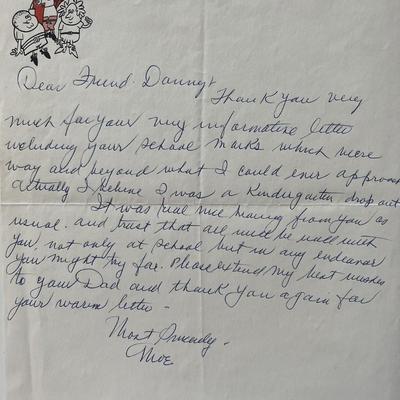 Dear Friend Danny:
Thank you very
much for your very informative letter
including your school marks which were
way and beyond what I could ever approach
actually I believe I was a Kindergarten drop out
It was real nice hearing from you as
usual. and trust that all will be well with
you, not only at school but in any endeavor
you might try for. Please extend my best wishes
to your Dad and thank you again for
your warm letter -
Most Sincerely -
Moe